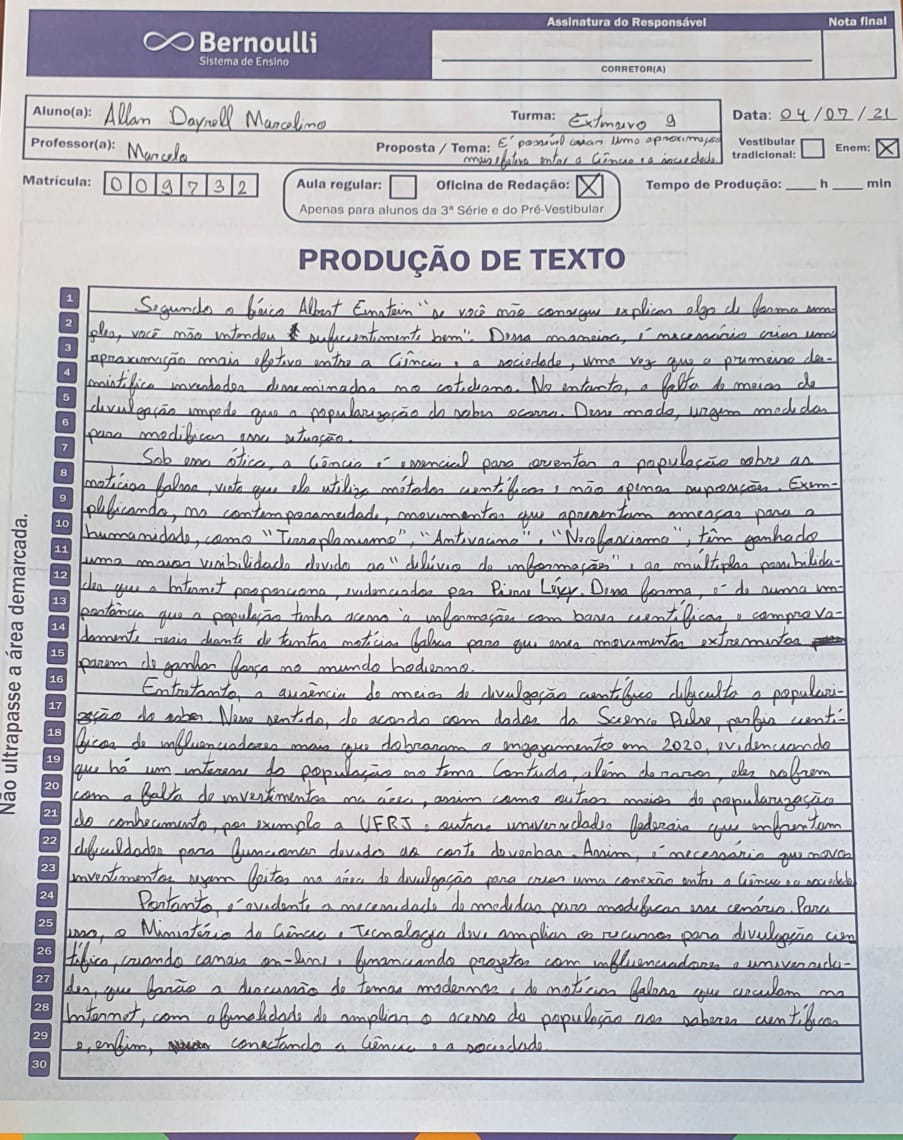 Assinatura do Responsável
Nota final
Bernoulli
Sistema de Ensino
CORRETOR(A)
Aluno(a): Allan Dayrell Marcelino
Turma: Extensivo 9
Data: 04/07/21
Professor(a): Marcela
Proposta / Tema: É possível criar uma aproximação
mais efetiva entre a Ciência e a sociedade
Vestibular tradicional:
Enem: X
Matrícula: 009732
Aula regular:
Oficina de Redação: X
Tempo de Produção: ____ h ____ min
Apenas para alunos da 3ª Série e do Pré-Vestibular
PRODUÇÃO DE TEXTO
Não ultrapasse a área demarcada.
1 Segundo o físico Albert Einstein "se você não consegue explicar algo de forma sim-
2 ples, você não entendeu suficientemente bem". Dessa maneira, é necessário criar uma
3 aproximação mais efetiva entre a Ciência e a sociedade, uma vez que a primeira des-
4 mistifica inverdades disseminadas no cotidiano. No entanto, a falta de meios de
5 divulgação impede que a popularização do saber ocorra. Desse modo, urgem medidas
6 para modificar essa situação.
7 Sob essa ótica, a Ciência é essencial para orientar a população sobre as
8 notícias falsas, visto que ela utiliza métodos científicos e não apenas suposições. Exem-
9 plificando, na contemporaneidade, movimentos que apresentam ameaças para a
10 humanidade, como "Terraplanismo", "Antivacina", "Neofascismo", têm ganhado
11 uma maior visibilidade devido ao "dilúvio de informações" e as múltiplas possibilida-
12 des que a Internet proporciona, evidenciados por Pierre Lévy. Dessa forma, é de suma im-
13 portância que a população tenha acesso à informações com bases científicas e comprova-
14 damente reais diante de tantas notícias falsas para que esses movimentos extremistas
15 parem de ganhar força no mundo hodierno.
16 Entretanto, a ausência de meios de divulgação científica dificulta a populari-
17 zação do saber. Nesse sentido, de acordo com dados da Science Pulse, perfis cientí-
18 ficos de influenciadores mais que dobraram o engajamento em 2020, evidenciando
19 que há um interesse da população no tema. Contudo, além de raros, eles sofrem
20 com a falta de investimentos na área, assim como outros meios de popularização
21 do conhecimento, por exemplo a UFRJ e outras universidades federais que enfrentam
22 dificuldades para funcionar devido ao corte de verbas. Assim, é necessário que novos
23 investimentos sejam feitos na área de divulgação para criar uma conexão entre a Ciência e a sociedade
24 Portanto, é evidente a necessidade de medidas para modificar esse cenário. Para
25 isso, o Ministério de Ciência e Tecnologia deve ampliar os recursos para divulgação cien-
26 tífica, criando canais on-line e financiando projetos com influenciadores e universida-
27 des, que farão a discussão de temas modernos e de notícias falsas que circulam na
28 Internet, com a finalidade de ampliar o acesso da população aos saberes científicos
29 e, enfim, conectando a Ciência e a sociedade.
30